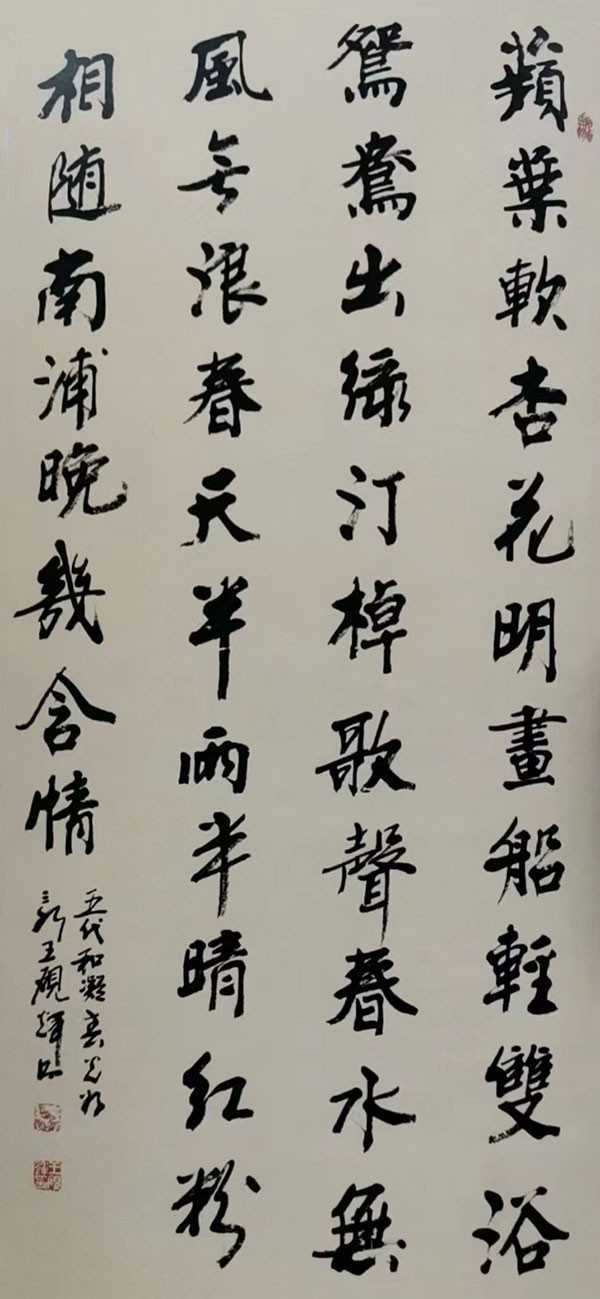 蘋葉軟杏花明畫船輕雙浴
鴛鴦出綠汀棹歌聲春水無
風無浪春天半雨半晴紅粉
相随南浦晚幾含情
五代和凝春光好
王硯輝书